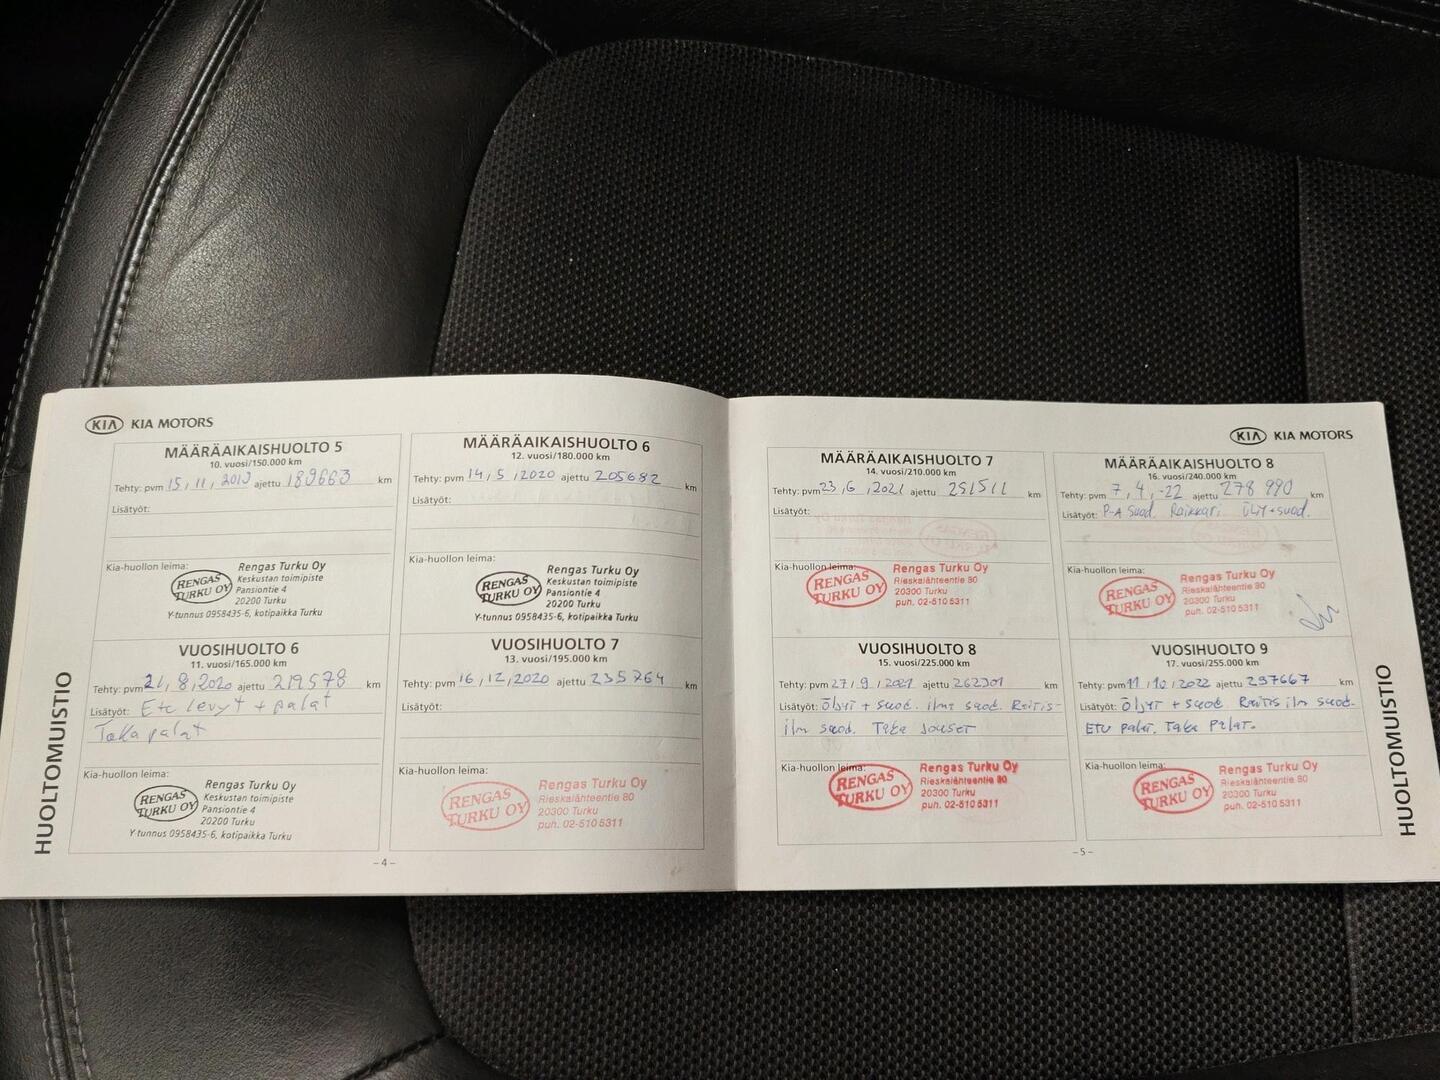 KIA KIA MOTORS
MÄÄRÄAIKAISHUOLTO 5
10. vuosi/150.000 km
Tehty: pvm 15, 11, 2019 ajettu 189663 km
Lisätyöt:
Kia-huollon leima:
RENGAS TURKU OY
Rengas Turku Oy
Keskustan toimipiste
Pansiontie 4
20200 Turku
Y-tunnus 0958435-6, kotipaikka Turku
MÄÄRÄAIKAISHUOLTO 6
12. vuosi/180.000 km
Tehty: pvm 14, 5, 2020 ajettu 205682 km
Lisätyöt:
Kia-huollon leima:
RENGAS TURKU OY
Rengas Turku Oy
Keskustan toimipiste
Pansiontie 4
20200 Turku
Y-tunnus 0958435-6, kotipaikka Turku
VUOSIHUOLTO 6
11. vuosi/165.000 km
Tehty: pvm 21, 8, 2020 ajettu 219578 km
Lisätyöt: Etu levyt + palat
Taka palat
Kia-huollon leima:
RENGAS TURKU OY
Rengas Turku Oy
Keskustan toimipiste
Pansiontie 4
20200 Turku
Y-tunnus 0958435-6, kotipaikka Turku
VUOSIHUOLTO 7
13. vuosi/195.000 km
Tehty: pvm 16, 12, 2020 ajettu 235764 km
Lisätyöt:
Kia-huollon leima:
RENGAS TURKU OY
Rengas Turku Oy
Rieskalähteentie 80
20300 Turku
puh. 02-510 5311
HUOLTOMUISTIO
– 4 –
KIA KIA MOTORS
MÄÄRÄAIKAISHUOLTO 7
14. vuosi/210.000 km
Tehty: pvm 23, 6, 2021 ajettu 251511 km
Lisätyöt:
Kia-huollon leima:
RENGAS TURKU OY
Rengas Turku Oy
Rieskalähteentie 80
20300 Turku
puh. 02-510 5311
MÄÄRÄAIKAISHUOLTO 8
16. vuosi/240.000 km
Tehty: pvm 7, 4, -22 ajettu 278 990 km
Lisätyöt: P-A Suod. Raikkari Öljy+suod.
Kia-huollon leima:
RENGAS TURKU OY
Rengas Turku Oy
Rieskalähteentie 80
20300 Turku
puh. 02-510 5311
VUOSIHUOLTO 8
15. vuosi/225.000 km
Tehty: pvm 27, 9, 2021 ajettu 262301 km
Lisätyöt: Öljyt + suod. ilma suod. Raitis-
ilm suod. Taka jouset
Kia-huollon leima:
RENGAS TURKU OY
Rengas Turku Oy
Rieskalähteentie 80
20300 Turku
puh. 02-510 5311
VUOSIHUOLTO 9
17. vuosi/255.000 km
Tehty: pvm 11, 10, 2022 ajettu 297667 km
Lisätyöt: Öljyt + suod. Raitis ilm suod.
Etu palat. Taka palat.
Kia-huollon leima:
RENGAS TURKU OY
Rengas Turku Oy
Rieskalähteentie 80
20300 Turku
puh. 02-510 5311
HUOLTOMUISTIO
– 5 –